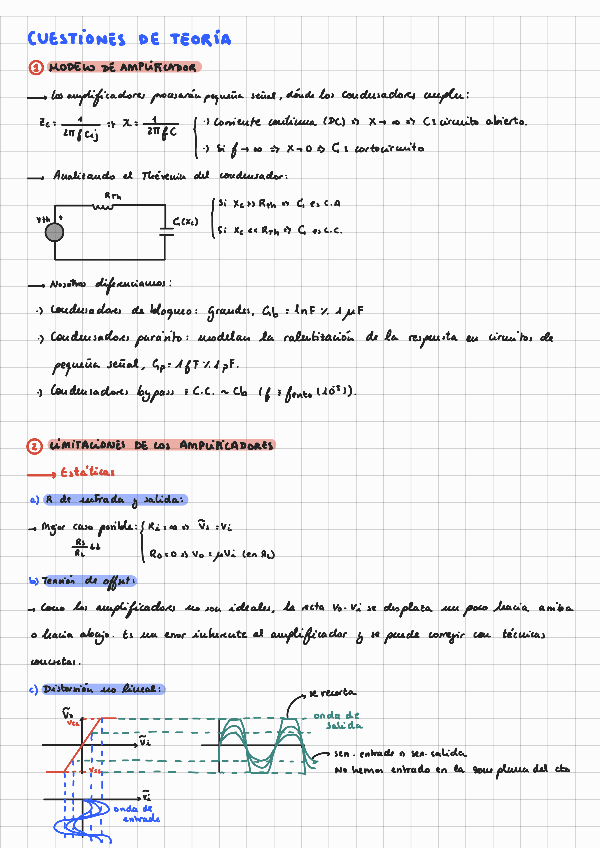 CUESTIONES DE TEORÍA
1 MODELO DE AMPLIFICADOR
→ Los amplificadores procesarán pequeña señal, donde los condensadores cumplen:
Zc = 1/2πfCj ⇒ X = 1/2πfC
·) Corriente continua (DC) ⇒ X → ∞ ⇒ C ≡ circuito abierto.
·) Si f → ∞ ⇒ X → 0 ⇒ C ≡ cortocircuito
→ Analizando el Thévenin del condensador:
RTh
Vth +
C(Xc)
Si Xc >> RTh ⇒ C es C.A
Si Xc << RTh ⇒ C es C.C.
→ Nosotros diferenciamos:
·) Condensadores de bloqueo: Grandes, Cb = 1nF % 1μF
·) Condensadores parásito: modelan la ralentización de la respuesta en circuitos de
pequeña señal, Cp = 1fF % 1pF.
·) Condensadores bypass ≡ C.C. ~ Cb (f ≡ femto (10
2 LIMITACIONES DE LOS AMPLIFICADORES
→ Estáticas
a) R de entrada y salida:
→ Mejor caso posible: Ri = ∞ ⇒ Ṽi = Vi
Ro = 0 ⇒ Vo = μVi (en RL)
b) Tensión de offset:
→ Como los amplificadores no son ideales, la recta Vo-Vi se desplaza un poco hacia arriba
o hacia abajo. Es un error inherente al amplificador y se puede corregir con técnicas
concretas.
c) Distorsión no lineal:
se recorta
Ṽo
Ṽi
onda de
salida
sen. entrada ≈ sen. salida
No hemos entrado en la zona plana del cto
Ṽi
onda de
entrada